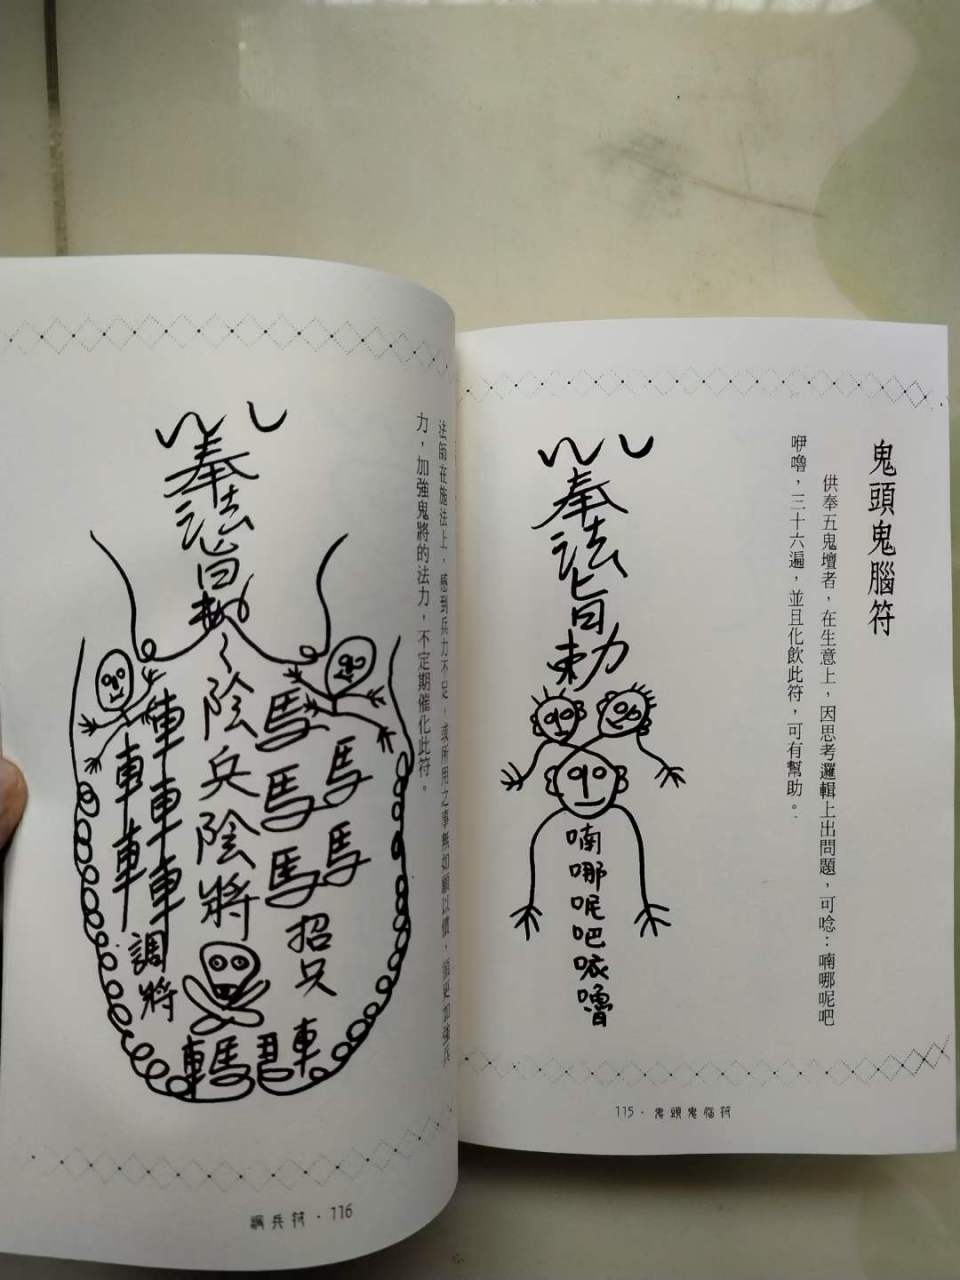 鬼頭鬼腦符
供奉五鬼壇者，在生意上，因思考邏輯上出問題，可唸：喃哪呢吧
咿嚕，三十六遍，並且化飲此符，可有幫助。
奉法旨敕
喃哪呢吧咴嚕
115．鬼頭鬼腦符
法師在施法上，感到兵力不足，或所用之事無如願以償，須更加強兵
力，加強鬼將的法力，不定期催化此符。
奉法旨敕
陰兵陰將
馬馬馬
馬馬
招兵
車車車
車車
調將
車馬
車
調兵符．116